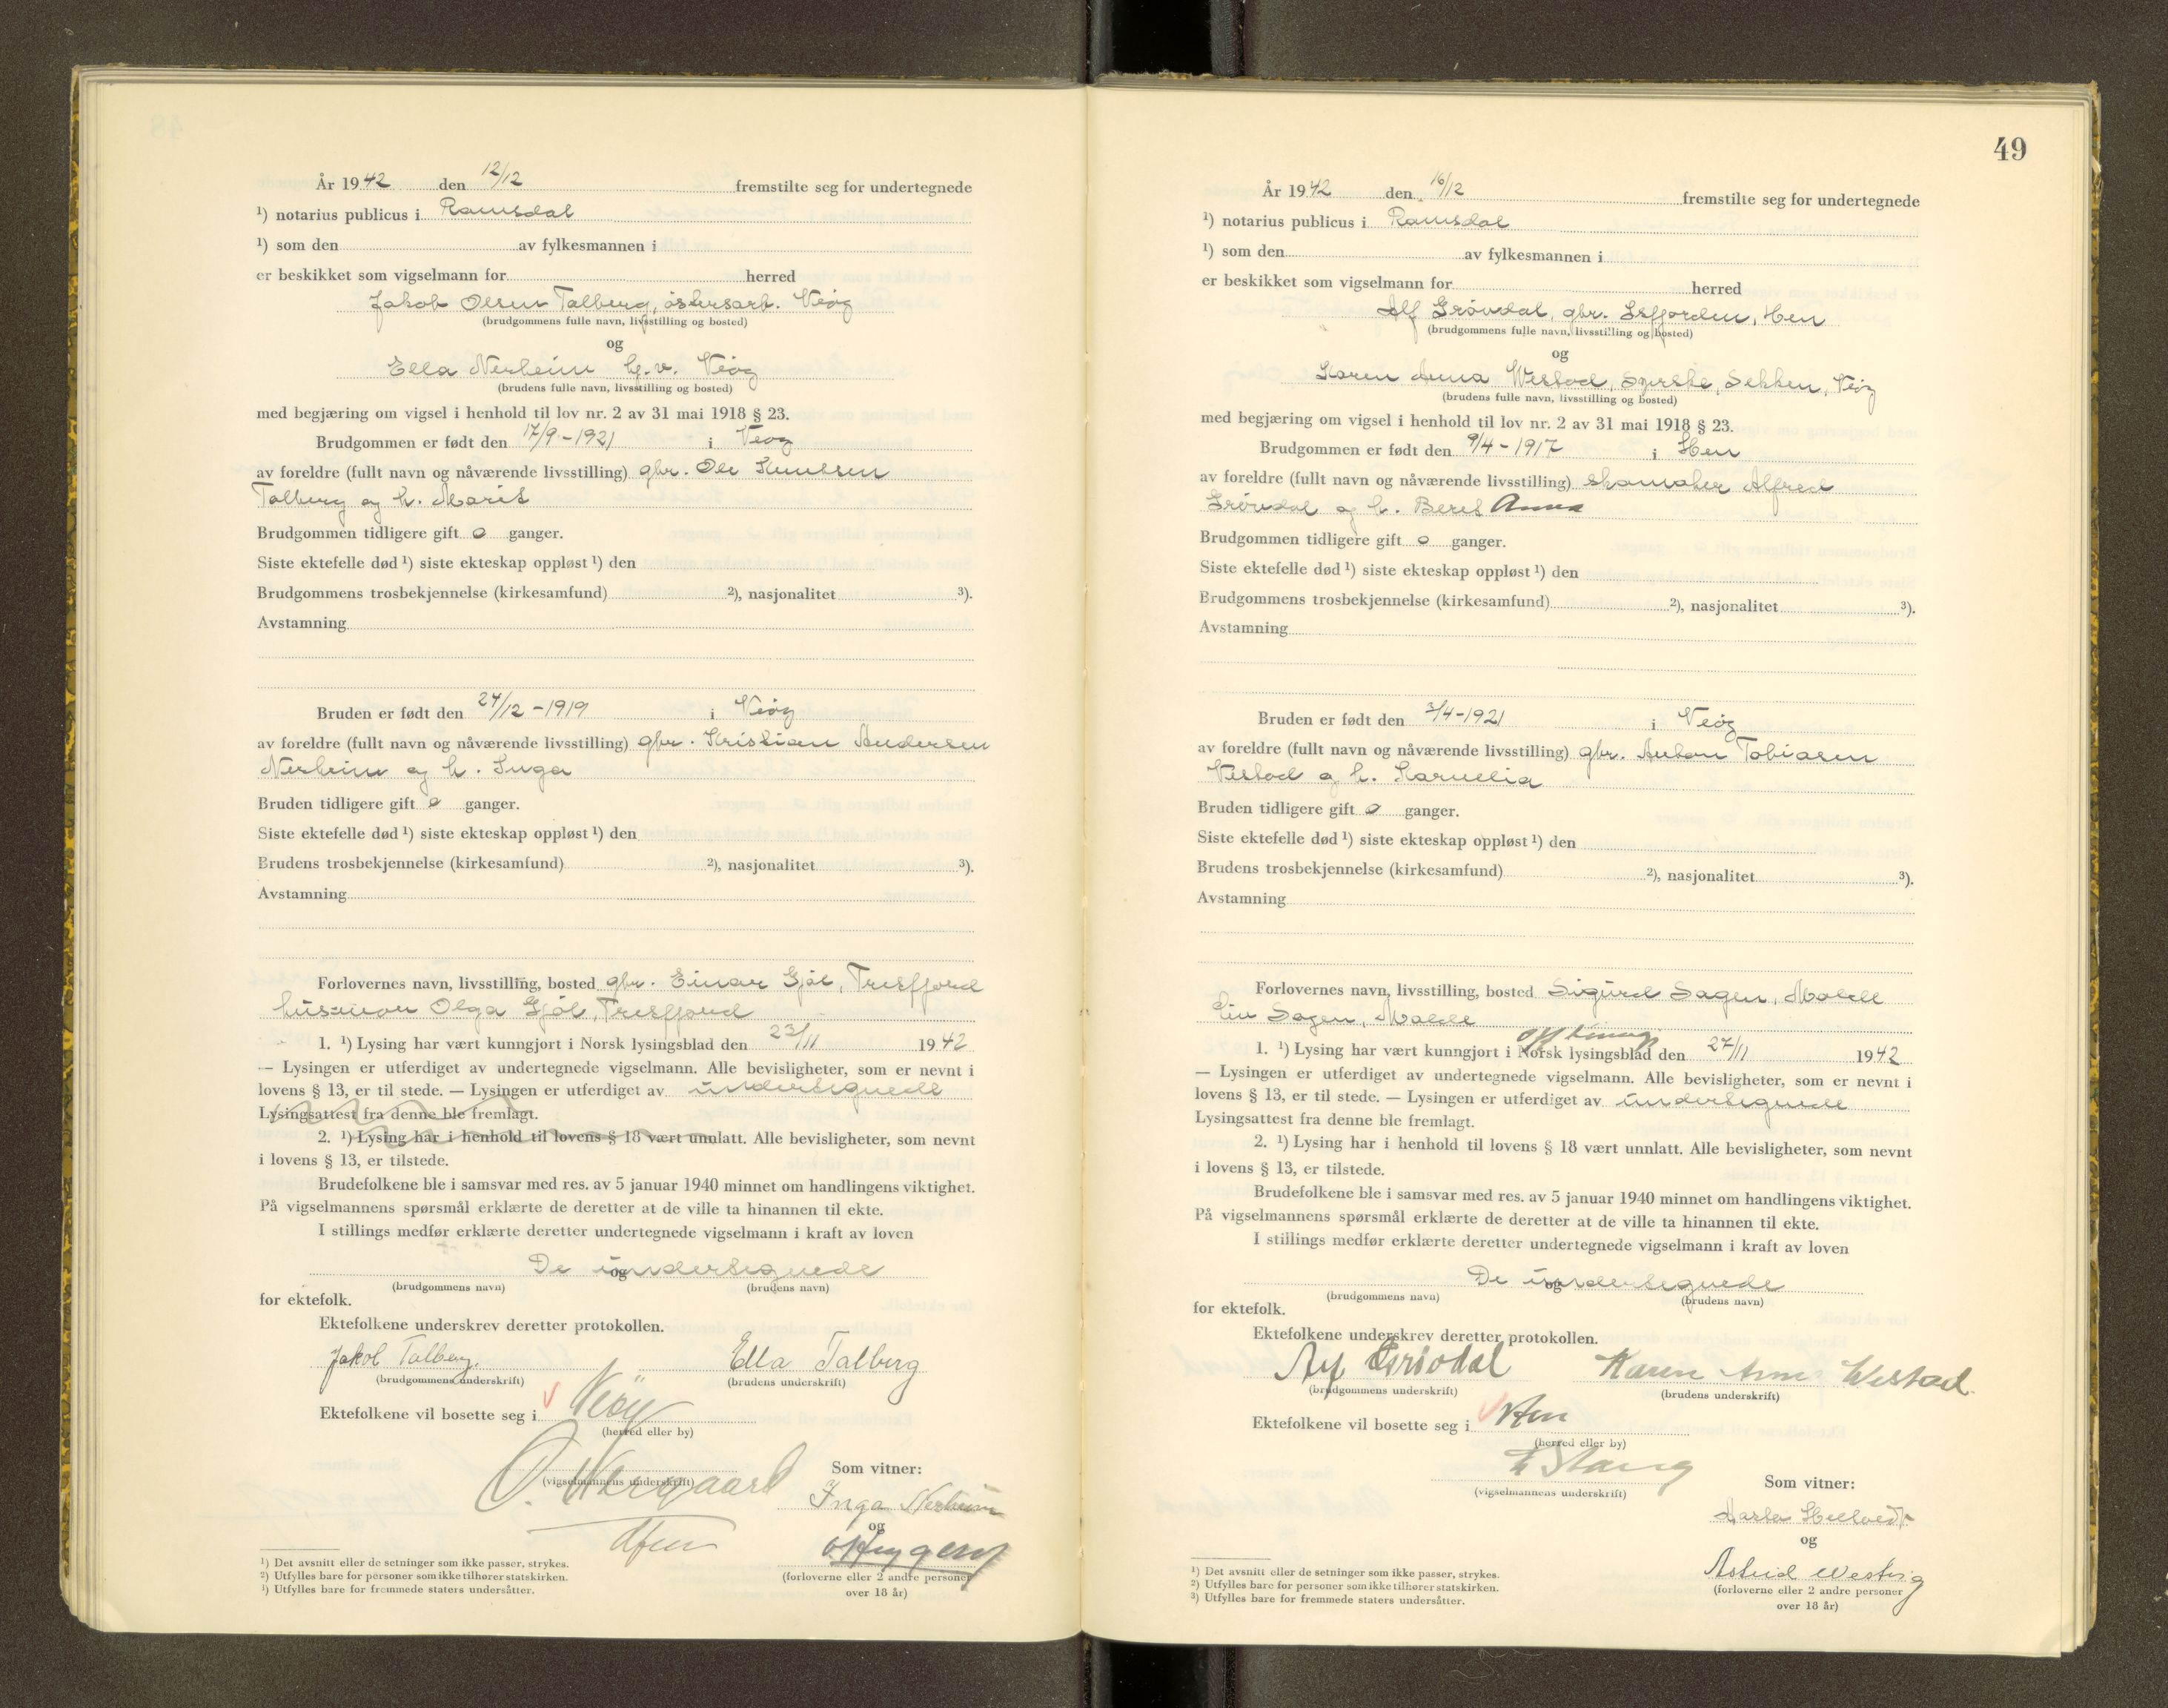 År 1942 den 12/12 fremstilte seg for undertegnede
¹) notarius publicus i Romsdal
¹) som den av fylkesmannen i
er beskikket som vigselmann for herred
Jakob Olsen Talberg, Veøy
(brudgommens fulle navn, livsstilling og bosted)
og
Ella Nerheim h.v. Veøy
(brudens fulle navn, livsstilling og bosted)
med begjæring om vigsel i henhold til lov nr. 2 av 31 mai 1918 § 23.
Brudgommen er født den 17/9-1921 i Veøy
av foreldre (fullt navn og nåværende livsstilling) gbr. Ole Knutsen
Talberg og h. Marit
Brudgommen tidligere gift 0 ganger.
Siste ektefelle død ¹) siste ekteskap oppløst ¹) den
Brudgommens trosbekjennelse (kirkesamfund) ²), nasjonalitet ³).
Avstamning
Bruden er født den 24/12-1919 i Veøy
av foreldre (fullt navn og nåværende livsstilling) gbr. Kristian Andersen
Nerheim og h. Inga
Bruden tidligere gift 0 ganger.
Siste ektefelle død ¹) siste ekteskap oppløst ¹) den
Brudens trosbekjennelse (kirkesamfund) ²), nasjonalitet ³).
Avstamning
Forlovernes navn, livsstilling, bosted gbr. Einar Gjøl, Tresfjord
husmor Olga Gjøl, Tresfjord
1. ¹) Lysing har vært kunngjort i Norsk lysingsblad den 23/11 1942
— Lysingen er utferdiget av undertegnede vigselmann. Alle bevisligheter, som er nevnt i
lovens § 13, er til stede. — Lysingen er utferdiget av undertegnede
Lysingsattest fra denne ble fremlagt.
2. ¹) Lysing har i henhold til lovens § 18 vært unnlatt. Alle bevisligheter, som nevnt
i lovens § 13, er tilstede.
Brudefolkene ble i samsvar med res. av 5 januar 1940 minnet om handlingens viktighet.
På vigselmannens spørsmål erklærte de deretter at de ville ta hinannen til ekte.
I stillings medfør erklærte deretter undertegnede vigselmann i kraft av loven
De undertegnede
og
(brudgommens navn) (brudens navn)
for ektefolk.
Ektefolkene underskrev deretter protokollen.
Jakob Talberg. Ella Talberg
(brudgommens underskrift) (brudens underskrift)
Ektefolkene vil bosette seg i Veøy
(herred eller by)
(vigselmannens underskrift)
Som vitner:
Inga Nerheim
og
(forloverne eller 2 andre personer
over 18 år)
¹) Det avsnitt eller de setninger som ikke passer, strykes.
²) Utfylles bare for personer som ikke tilhører statskirken.
³) Utfylles bare for fremmede staters undersåtter.
49
År 1942 den 16/12 fremstilte seg for undertegnede
¹) notarius publicus i Romsdal
¹) som den av fylkesmannen i
er beskikket som vigselmann for herred
Alf Grøvdal, gbr. Isfjorden, Hen
(brudgommens fulle navn, livsstilling og bosted)
og
Karen Anna Westad, Syerske, Sekken, Veøy
(brudens fulle navn, livsstilling og bosted)
med begjæring om vigsel i henhold til lov nr. 2 av 31 mai 1918 § 23.
Brudgommen er født den 9/4-1917 i Hen
av foreldre (fullt navn og nåværende livsstilling) skomaker Alfred
Grøvdal og h. Beret Anna
Brudgommen tidligere gift 0 ganger.
Siste ektefelle død ¹) siste ekteskap oppløst ¹) den
Brudgommens trosbekjennelse (kirkesamfund) ²), nasjonalitet ³).
Avstamning
Bruden er født den 3/4-1921 i Veøy
av foreldre (fullt navn og nåværende livsstilling) gbr. Anton Tobiasen
Vestad og h. Karnelia
Bruden tidligere gift 0 ganger.
Siste ektefelle død ¹) siste ekteskap oppløst ¹) den
Brudens trosbekjennelse (kirkesamfund) ²), nasjonalitet ³).
Avstamning
Forlovernes navn, livsstilling, bosted Sigurd Sagen, Molde
Lin Sagen, Molde
1. ¹) Lysing har vært kunngjort i Norsk lysingsblad den 27/11 1942
— Lysingen er utferdiget av undertegnede vigselmann. Alle bevisligheter, som er nevnt i
lovens § 13, er til stede. — Lysingen er utferdiget av undertegnede
Lysingsattest fra denne ble fremlagt.
2. ¹) Lysing har i henhold til lovens § 18 vært unnlatt. Alle bevisligheter, som nevnt
i lovens § 13, er tilstede.
Brudefolkene ble i samsvar med res. av 5 januar 1940 minnet om handlingens viktighet.
På vigselmannens spørsmål erklærte de deretter at de ville ta hinannen til ekte.
I stillings medfør erklærte deretter undertegnede vigselmann i kraft av loven
De undertegnede
og
(brudgommens navn) (brudens navn)
for ektefolk.
Ektefolkene underskrev deretter protokollen.
Alf Grøvdal Karen Anna Westad
(brudgommens underskrift) (brudens underskrift)
Ektefolkene vil bosette seg i Hen
(herred eller by)
E Stang
(vigselmannens underskrift)
Som vitner:
og
Astrid Westvig
(forloverne eller 2 andre personer
over 18 år)
¹) Det avsnitt eller de setninger som ikke passer, strykes.
²) Utfylles bare for personer som ikke tilhører statskirken.
³) Utfylles bare for fremmede staters undersåtter.